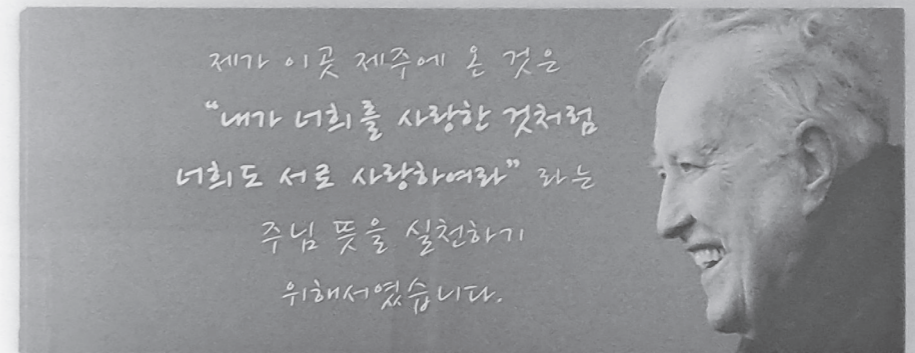 제가 이곳 제주에 온 것은
“내가 너희를 사랑한 것처럼
너희도 서로 사랑하여라” 라는
주님 뜻을 실천하기
위해서였습니다.